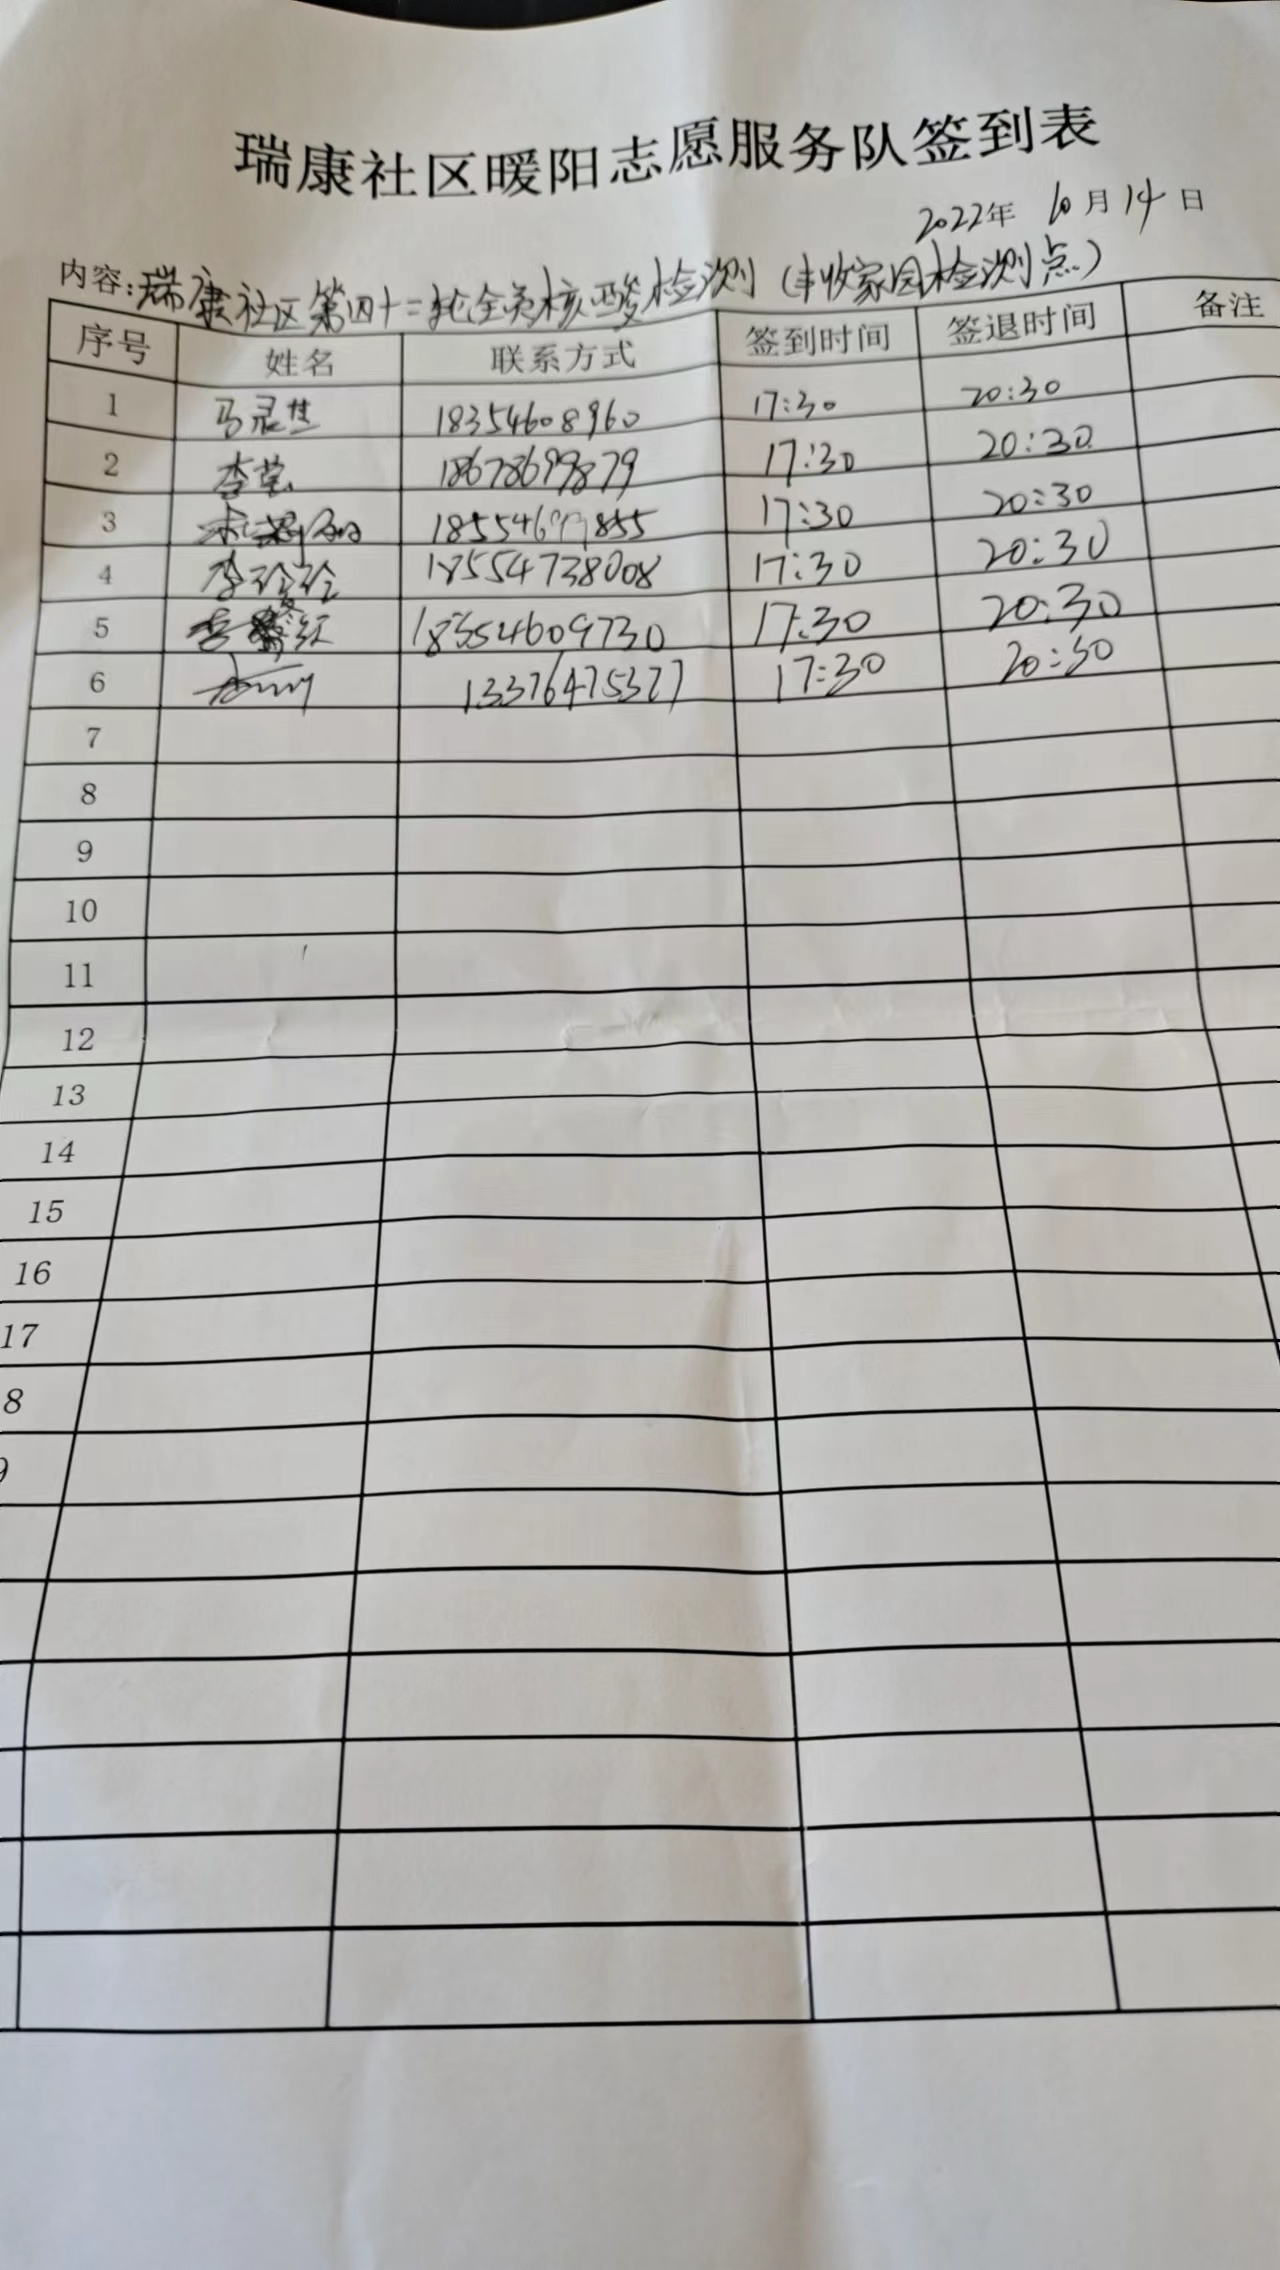 瑞康社区暖阳志愿服务队签到表
2022年 10月14日
内容:瑞康社区第四十二轮全员核酸检测(丰收家园检测点)
序号 姓名 联系方式 签到时间 签退时间 备注
1 马灵芝 18354608960 17:30 20:30
2 李莹 18678699879 17:30 20:30
3 18554699855 17:30 20:30
4 李玲玲 18554738008 17:30 20:30
5 18354609730 17:30 20:30
6 13376475327 17:30 20:30
7
8
9
10
11
12
13
14
15
16
17
8
9